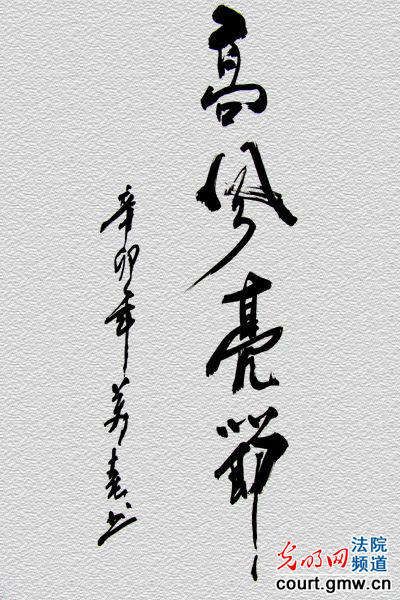 高風亮節
辛卯年萬书
光明网
法院
频道
court.gmw.cn